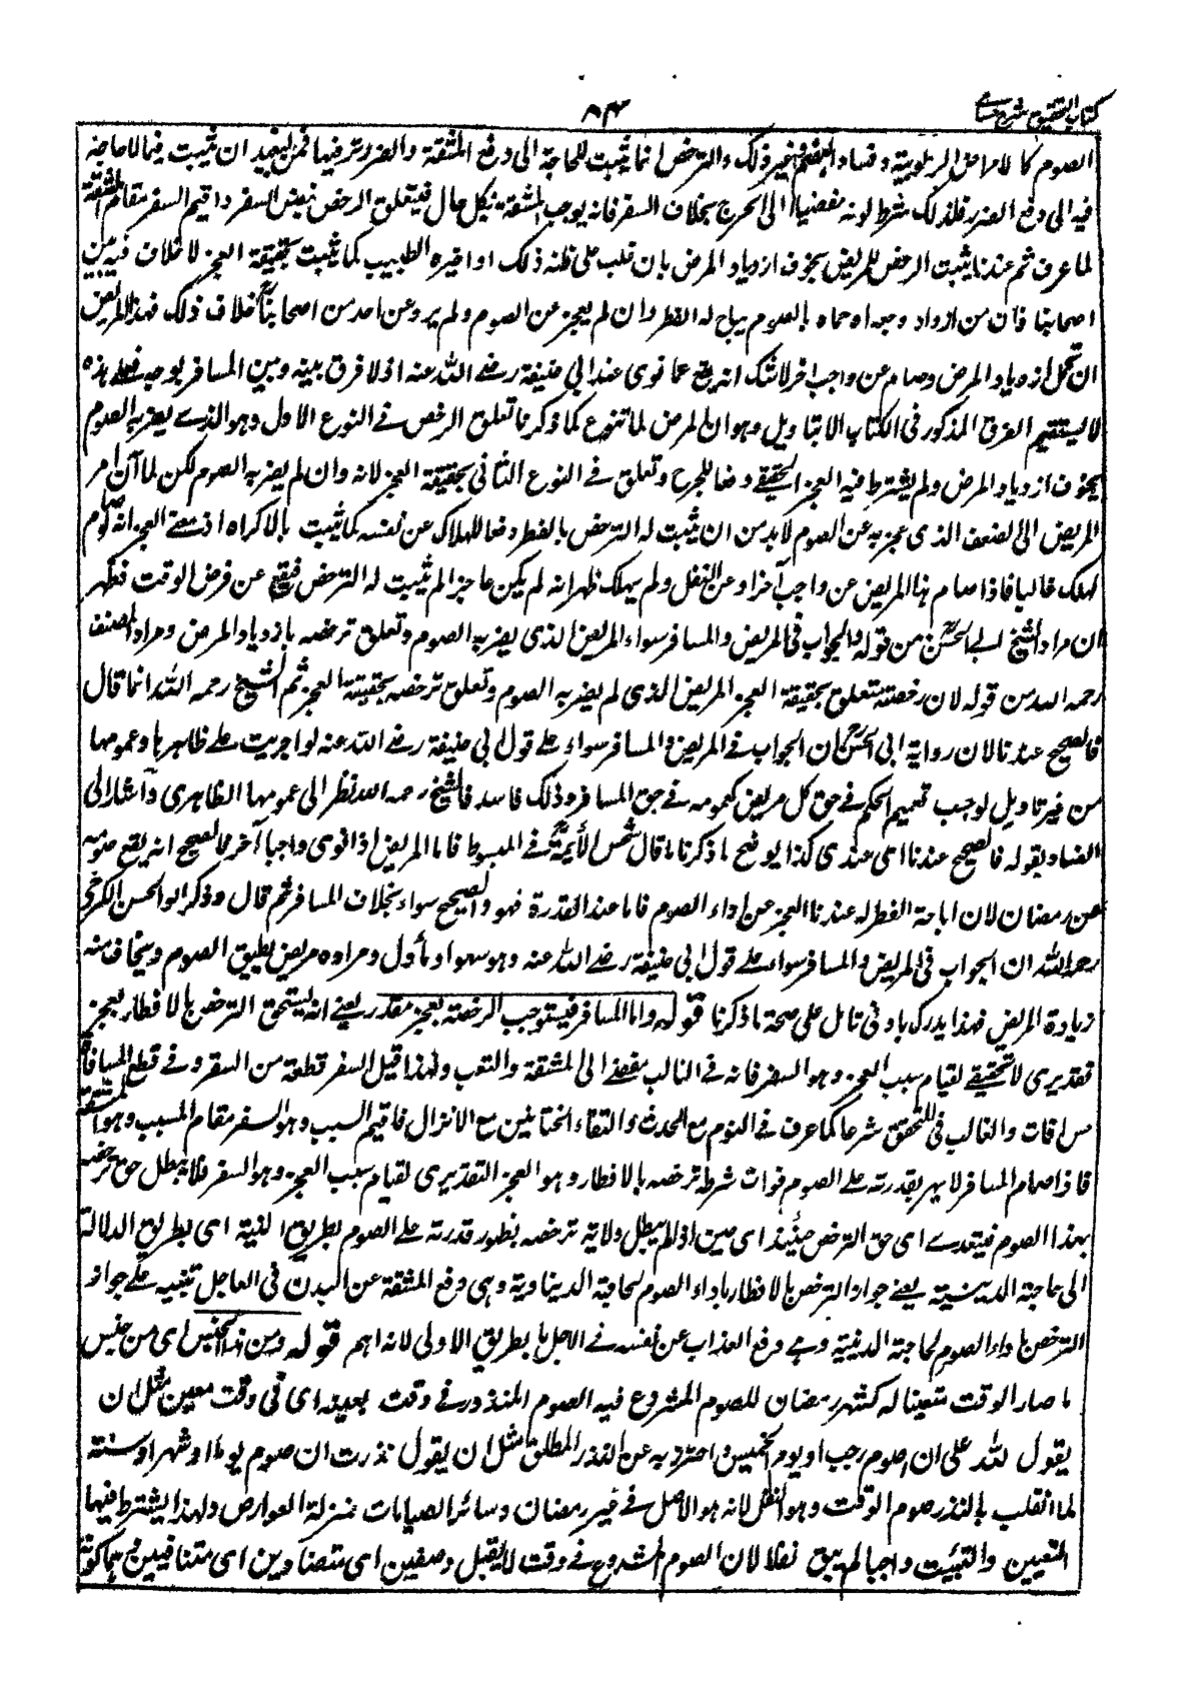 كتاب التحقيق شرح حسامى
٨٣
الصوم كالامراض الرطوبية وفساد الهضم وغير ذلك والترخص انما يثبت للحاجة الى دفع المشقة والضرر ترفيها فمن البعيد ان يثبت فيما لا حاجة
فيه الى دفع الضرر فلذلك شرط لونه مفضيا الى الحرج بخلاف السفر فانه يوجب المشقة بكل حال فيتعلق الرخص بنفس السفر واقيم السفر مقام المشقة
لما عرف ثم عندنا يثبت الرخص للمريض بخوف ازدياد المرض بان غلب على ظنه ذلك او اخبره الطبيب كما يثبت بحقيقة العجز لا خلاف فيه بين
اصحابنا فان من ازداد وجعه او حماه بالصوم يباح له الفطر وان لم يعجز عن الصوم ولم يرو عن احد من اصحابنا خلاف ذلك فهذا المريض
ان تحمل ازدياد المرض وصام عن واجب اخر لا شك انه يقع عما نوى عند ابي حنيفة رضى الله عنه اذ لا فرق بينه وبين المسافر بوجه فعلى هذه
لا يستقيم الفرق المذكور فى الكتاب الا بتاويل وهو ان المرض لما تنوع كما ذكرنا تعلق الرخص فى النوع الاول وهو الذى يضر به الصوم
بخوف ازدياد المرض ولم يشترط فيه العجز الحقيقى دفعا للحرج وتعلق فى النوع الثانى بحقيقة العجز لانه وان لم يضر به الصوم لكن لما آل امر
المريض الى الضعف الذى عجز به عن الصوم لا بد من ان يثبت له الترخص بالفطر دفعا للهلاك عن نفسه كما يثبت بالاكراه اذ معنى العجز انه لو صام
لهلك غالبا فاذا صام هذا المريض عن واجب آخر او عن النفل ولم يهلك ظهر انه لم يكن عاجزا فلم يثبت له الترخص فيقع عن فرض الوقت فظهر
ان مراد الشيخ ابى الحسن من قوله والجواب فى المريض والمسافر سواء المريض الذى يضر به الصوم وتعلق ترخصه بازدياد المرض ومراد المصنف
رحمه الله من قوله لان رخصته تتعلق بحقيقة العجز المريض الذى لم يضر به الصوم وتعلق ترخصه بحقيقة العجز ثم الشيخ رحمه الله انما قال
فالصحيح عندنا لان رواية ابى الحسن ان الجواب فى المريض والمسافر سواء على قول ابى حنيفة رضى الله عنه لو اجريت على ظاهرها وعمومها
من غير تاويل لوجب تعميم الحكم فى حق كل مريض كعمومه فى حق المسافر وذلك فاسد فالشيخ رحمه الله نظر الى عمومها الظاهرى وآشار الى
الفساد بقوله فالصحيح عندنا اى عندى كذا يوضح ما ذكرنا ما قال شمس الأئمة فى المبسوط فاما المريض اذا نوى واجبا آخر فالصحيح انه يقع صومه
عن رمضان لان اباحة الفطر له عندنا العجز عن اداء الصوم فاما عند القدرة فهو والصحيح سواء بخلاف المسافر ثم قال وذكر ابو الحسن الكرخى
رحمه الله ان الجواب فى المريض والمسافر سواء على قول ابى حنيفة رضى الله عنه وهو سهو او مأول ومراده مريض يطيق الصوم ويخاف منه
زيادة المرض فهذا يدرك بادنى تامل على صحة ما ذكرنا قوله واما المسافر فيستوجب الرخصة بعجز مقدر يعنى انه يستحق الترخص بالافطار بعجز
تقديرى لا تحقيقى لقيام سبب العجز وهو السفر فانه فى الغالب مفضى الى المشقة والتعب ولهذا قيل السفر قطعة من السقر وفى قطع المسافة
مس آفات والغالب فى التحقق شرعا كما عرف فى النوم مع الحدث والتقاء الختانين مع الانزال فاقيم السبب وهو السفر مقام المسبب وهو المشقة
فاذا صام المسافر لا يهر بقدرته على الصوم فوات شرط ترخصه بالافطار وهو العجز التقديرى لقيام سبب العجز وهو السفر فلا يبطل حق ترخصه
بهذا الصوم فيتعدى اى حق الترخص حينئذ اى حين اذ لم يبطل ولاية ترخصه بظهور قدرته على الصوم بطريق التنبيه اى بطريق الدلالة
الى حاجة الدينية يعنى جواز الترخص بالافطار باداء الصوم لحاجة الدنياوية وهى دفع المشقة عن البدن فى العاجل تنبيه على جواز
الترخص باداء الصوم لحاجة الدينية وهى دفع العذاب عن نفسه فى الاجل بالطريق الاولى لانه اهم قوله ومن هذا الجنس اى من جنس
ما صار الوقت متعينا له كشهر رمضان للصوم المشروع فيه الصوم المنذور فى وقت بعينه اى فى وقت معين مثل ان
يقول لله على ان اصوم رجب او يوم الخميس واحترز به عن النذر المطلق مثل ان يقول نذرت ان صوم يوما او شهرا او سنة
لما انقلب بالنذر صوم الوقت وهو النفل لانه هو الاصل فى غير رمضان وسائر الصيامات بمنزلة العوارض ولهذا يشترط فيها
التعيين والتبييت واجبا لم يبق نفلا لان الصوم المشروع فى وقت لا يقبل وصفين اى متضادين اى متنافيين هما كونه